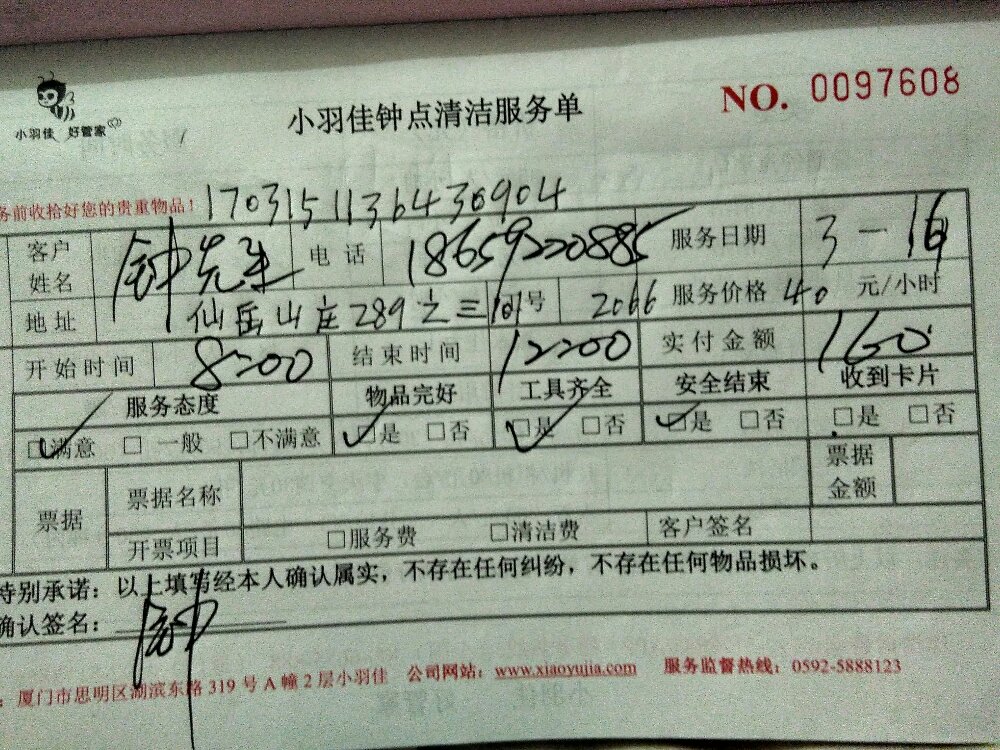 小羽佳 好管家
小羽佳钟点清洁服务单
NO. 0097608
务前收拾好您的贵重物品！ 170315113643690 4
客户姓名 钟先生 电话 18659220885 服务日期 3-16
地址 仙岳山庄289之三 号 2066 服务价格 40 元/小时
开始时间 8:00 结束时间 12:00 实付金额 160
服务态度 物品完好 工具齐全 安全结束 收到卡片
☑满意 □一般 □不满意 ☑是 □否 ☑是 □否 ☑是 □否 □是 □否
票据 票据名称 票据金额
开票项目 □服务费 □清洁费 客户签名
特别承诺：以上填写经本人确认属实，不存在任何纠纷，不存在任何物品损坏。
确认签名： 钟
：厦门市思明区湖滨东路319号A幢2层小羽佳 公司网站：www.xiaoyujia.com 服务监督热线：0592-5888123